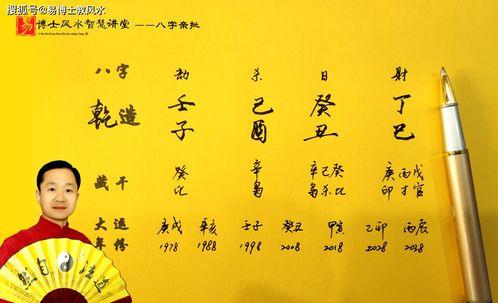 搜狐号@易博士教风水
易 博士风水智慧讲堂 ——八字亲批
Yi Bo Shi Feng Shui Zhi Hui Jiang Tang
八字 劫 杀 日 财
乾造 壬 己 癸 丁
子 酉 丑 巳
藏干 癸 辛 辛己癸 庚丙戊
比 枭 枭杀比 印才官
大运 庚戌 辛亥 壬子 癸丑 甲寅 乙卯 丙辰
年份 1978 1988 1998 2008 2018 2028 2038
道